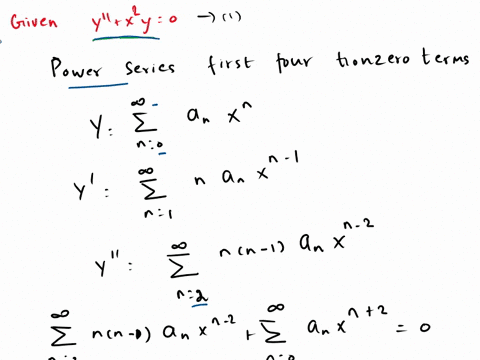 Given y'' + x²y = 0 → (1)
Power series first four nonzero terms
y = ∑_{n=0}^{∞} aₙ xⁿ
y' = ∑_{n=1}^{∞} n aₙ x^{n-1}
y'' = ∑_{n=2}^{∞} n(n-1) aₙ x^{n-2}
∑^{∞} n(n-1) aₙ x^{n-2} + ∑^{∞} aₙ x^{n+2} = 0